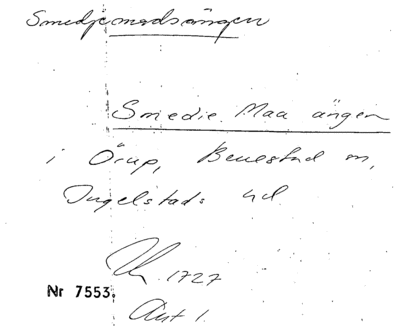 Smedjemadsängen
Smedie Maa ängen
i Örup, Benestad sn,
Ingelstads hd
1727
Nr 7553.
Akt 1.